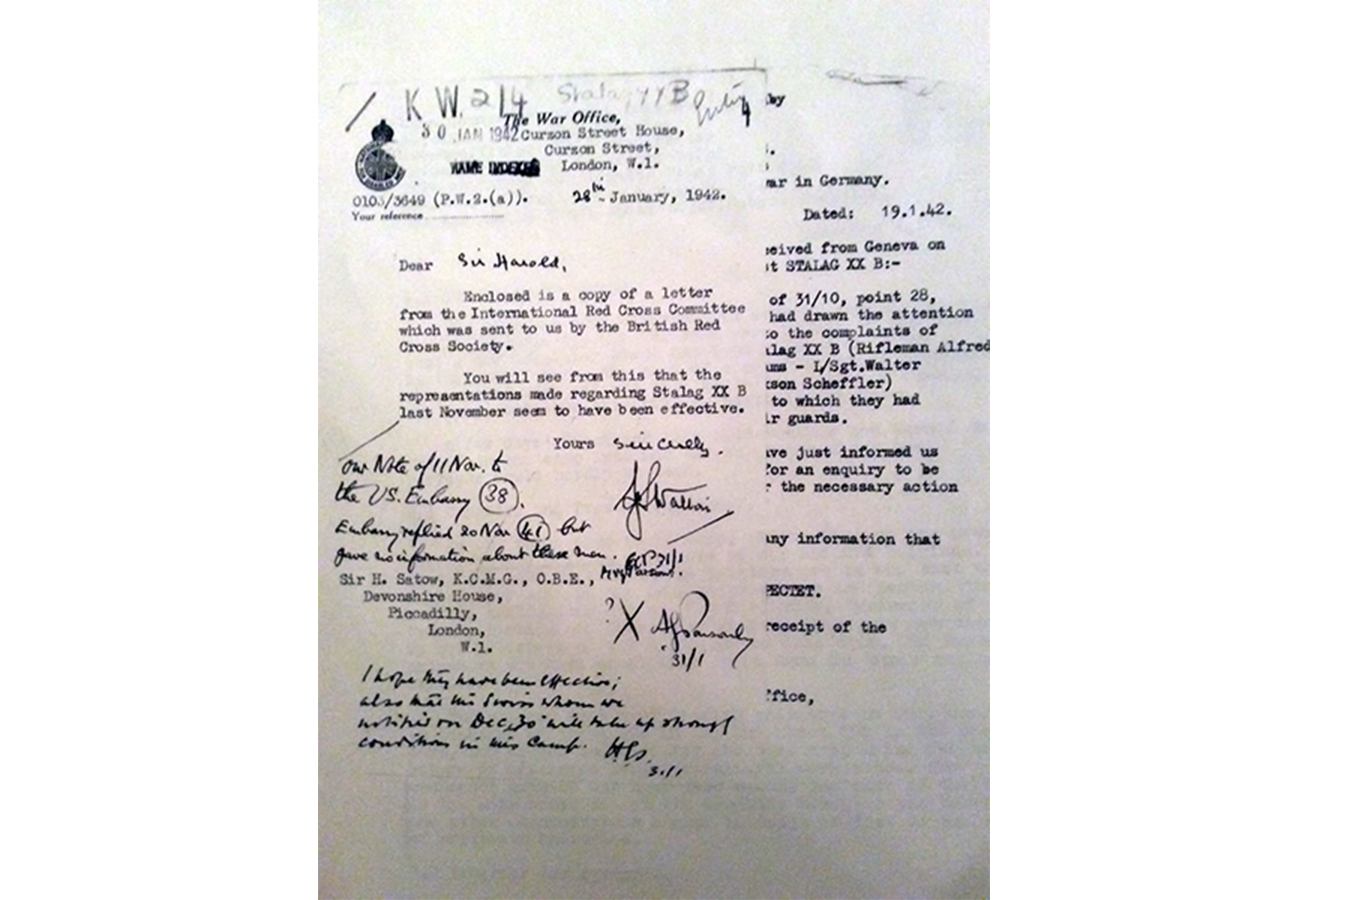 K W 2/4 Stalag XX B
4
The War Office,
30 JAN 1942 Curzon Street House,
Curzon Street,
NAME INDEXED London, W.1.
0103/3649 (P.W.2.(a)).
28th January, 1942.
Your reference
Dear Sir Harold,
Enclosed is a copy of a letter
from the International Red Cross Committee
which was sent to us by the British Red
Cross Society.
You will see from this that the
representations made regarding Stalag XX B
last November seem to have been effective.
Yours Sincerely.
our Note of 11 Nov. to
the US. Embassy (38).
Embassy replied 20 Nov (41) but
gave no information about these men.
31/1
Sir H. Satow, K.C.M.G., O.B.E.,
Devonshire House,
Piccadilly,
London,
W.1.
? X
31/1
I hope they have been effective;
also that the Swiss whom we
notified on Dec. 30 will take up strongly
conditions in this Camp. HS.
31/1
war in Germany.
Dated: 19.1.42.
eived from Geneva on
t STALAG XX B:-
of 31/10, point 28,
had drawn the attention
to the complaints of
lag XX B (Rifleman Alfred
ams - L/Sgt.Walter
son Scheffler)
to which they had
ir guards.
ve just informed us
for an enquiry to be
the necessary action
any information that
PECTET.
receipt of the
ffice,